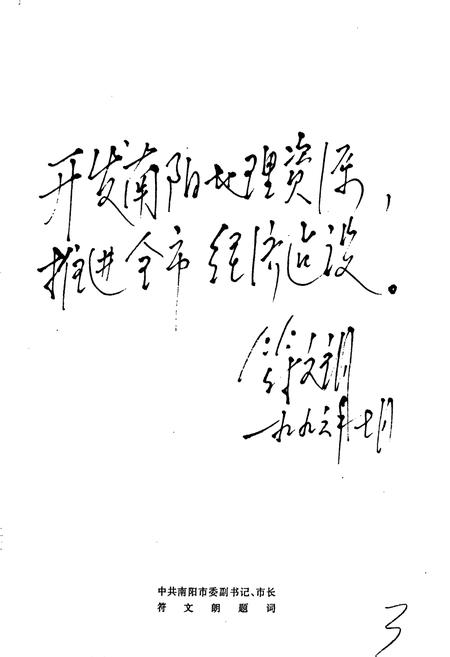 开发南阳地理资源，
推进全市经济建设。
符文朗
一九九六年七月
中共南阳市委副书记、市长
符文朗题词
3